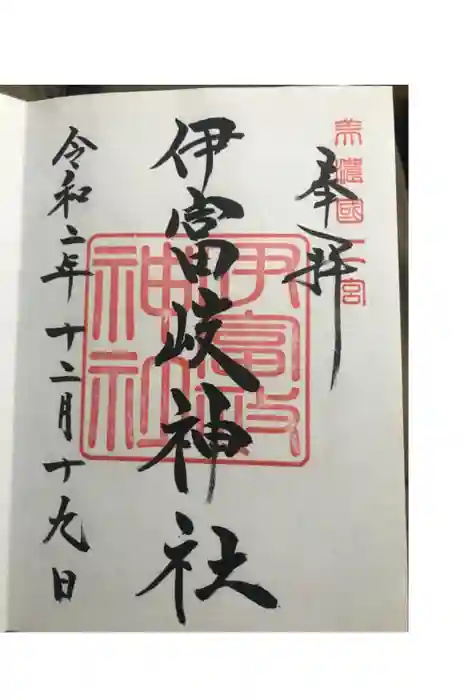 美濃國二宮
奉拝
伊富岐神社
伊富岐神社
令和二年十二月十九日